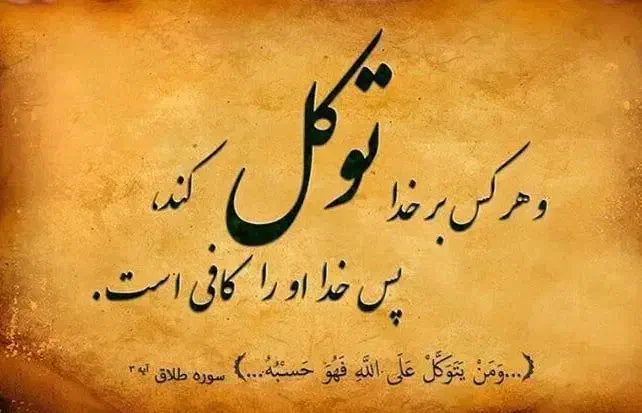 و هر کس بر خدا توکل کند،
پس خدا او را کافی است.
﴿...وَمَنْ يَتَوَكَّلْ عَلَى اللَّهِ فَهُوَ حَسْبُهُ...﴾ سوره طلاق آیه ۳